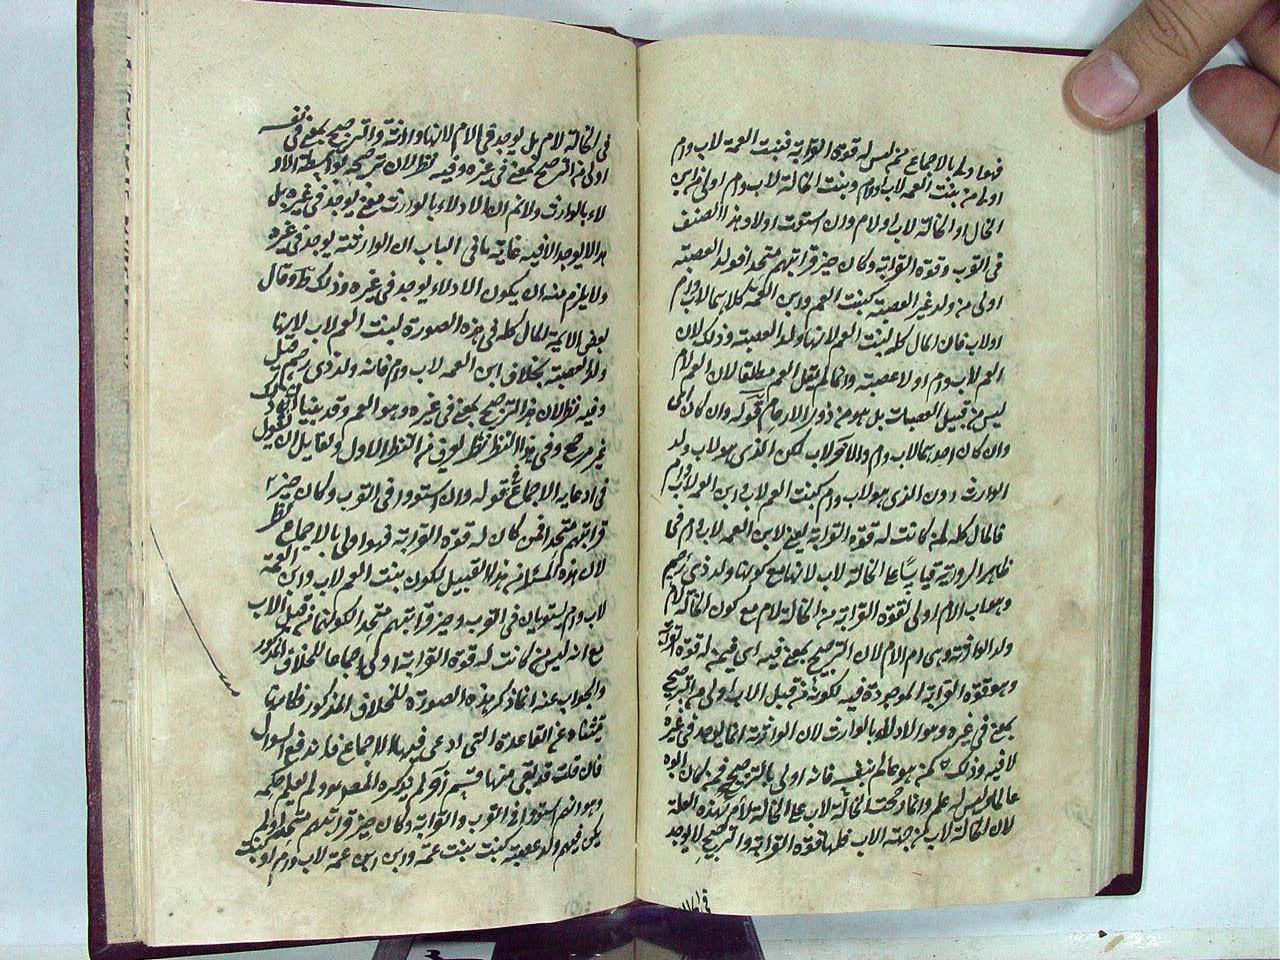 فهو اولى بالاجماع ممن ليس له قوة القرابة فبنت العمة لاب وام
اولى من بنت العمة لاب او لام وبنت الخالة لاب وام اولى من ابن
الخال او الخالة لاب او لام وان استوت اولاد هذا الصنف
فى القرب وقوة القرابة وكان حيز قرابتهم متحدا فولد العصبة
اولى من ولد غير العصبة كبنت العم وابن العمة كلاهما لاب وام
او لاب فان المال كله لبنت العم لانها ولد العصبة وذلك لان
العم لاب وام او لاب عصبة وانما لم يقل العم مطلقا لان العم لام
ليس من قبيل العصبات بل هو من ذوى الارحام قوله وان كان
وان كان احدهما لاب وام والاخر لاب لكن الذى هو لاب ولد
الوارث دون الذى هو لاب وام كبنت العم لاب وابن العمة لاب وام
فالمال كله لمن كانت له قوة القرابة يعنى لابن العمة لاب وام فى
ظاهر الرواية قياسا على الخالة لاب لانها مع كونها ولد ذى رحم
وهو اب الام اولى لقوة القرابة من الخالة لام مع كون الخالة لام
ولد الوارثة وهى ام الام لان الترجيح بمعنى فيه اى فيمن له قوة القرابة
وهو قوة القرابة الموجودة فيه لكونه من قبيل الاب اولى من الترجيح
بمعنى فى غيره وهو الادلاء بالوارث لان الوارثة انما يوجد فى غيره
لا فيه وذلك كمن هو عالم بنفسه فانه اولى بالترجيح ممن كان ابوه
عالما وليس له علم وانما رجحت الخالة لاب على الخالة لام بهذه العلة
لان الخالة لاب من جهة الاب فلها قوة القرابة والترجيح لا يوجد
فى الخا
فى الخالة لام بل يوجد فى الام لانها وارثة والترجيح بمعنى فى نفسه
اولى من الترجيح بمعنى فى غيره وفيه نظر لان ترجيحه بواسطة الاد
لاء بالوارث ولا ثم ان الادلاء بالوارث معنى يوجد فى غيره بل
هذا لا يوجد الا فيه غاية ما فى الباب ان الوارثة يوجد فى غيره
ولا يلزم منه ان يكون الادلاء يوجد فى غيره وذلك ظ وقال
بعض الايمة المال كله فى هذه الصورة لبنت العم لاب لانها
ولد العصبة بخلاف ابن العمة لاب وام فانه ولد ذى رحم
وفيه نظر لان هذا الترجيح بمعنى فى غيره وهو العم وقد بينا
غير مرجح وفى هذا النظر نظر يعرف من النظر الاول ولقايل ان يقول
فى ادعايه الاجماع فى قوله وان استووا فى القرب وكان حيز
قرابتهم متحدا فمن كان له قوة القرابة فهو اولى بالاجماع نظر
لان هذه المسئلة من هذا القبيل لكون بنت العم لاب وابن العمة
لاب وام يستويان فى القرب وحيز قرابتهم متحد لكونهما من قبل الاب
مع انه ليس من كانت له قوة القرابة اولى اجماعا للخلاف المذكور
والجواب عنه انما ذكر هذه الصورة للخلاف المذكور فكانها
مستثناة عن القاعدة التى ادعى فيها الاجماع فاندفع السوال
فان قلت قد بقى منها قسم اخر لم يذكره المصنف ولم يعلم حكمه
وهو انهم استووا فى القرب والقرابة وكان حيز قرابتهم متحدا ولم
يكن فيهم ولد عصبة كبنت بنت عمة وابن ابن عمة لاب وام او كبنت